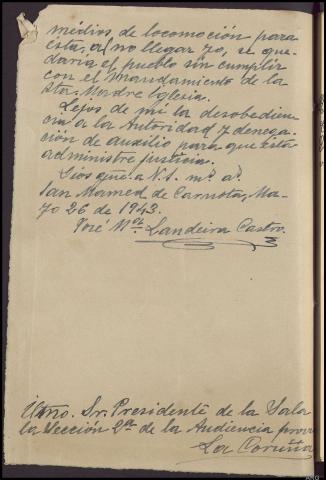 médios, de locomoción para
esta, a (no llegar yo, se que-
daria el pueblo sin cumplir
con el Mandamiento de la
Sta. Madre Iglesia.
Lejos de mi la desobedien-
cia a la Autoridad y denega-
ción de auxilio para que ésta
administre justicia.
Dios que. a V.I. m.s a.s
San Mamed de Carnota, Ma-
yo 26 de 1943.
José M.ª Landeira Castro.
Iltmo. Sr. Presidente de la Sala
la Sección 2ª de la Audiencia provin
La Coruña